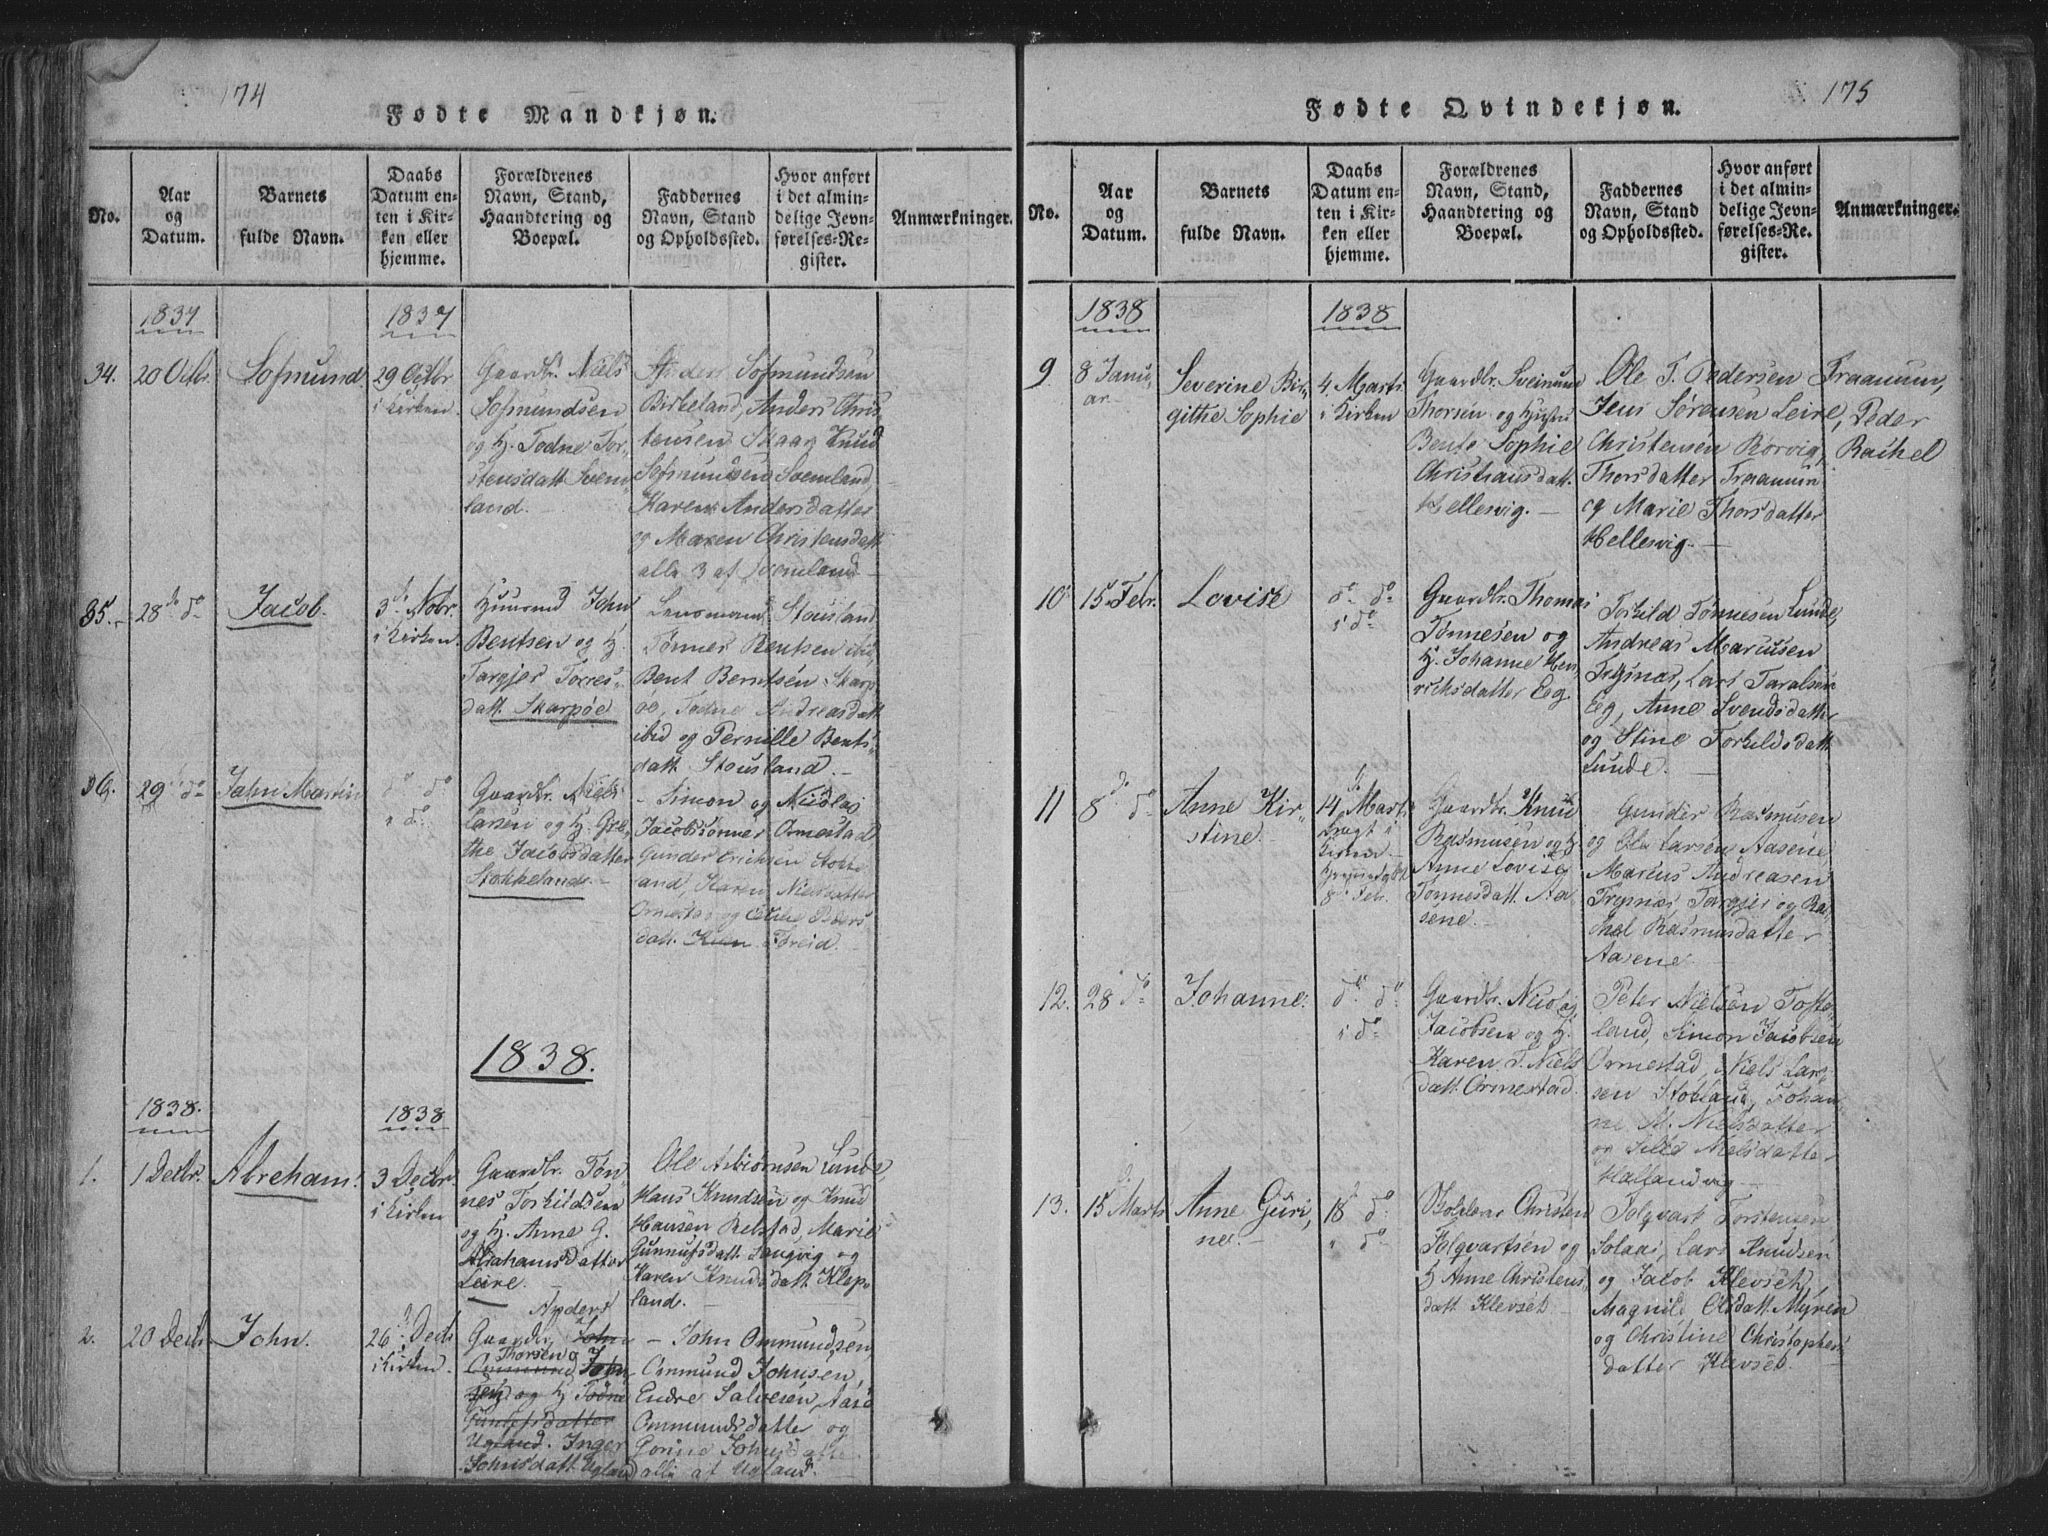 174
Fødte Mandkjøn.
No.
Aar
og
Datum.
Barnets
fulde Navn.
Daabs
Datum en-
ten i Kir-
ken eller
hjemme.
Forældrenes
Navn, Stand,
Haandtering og
Boepæl.
Faddernes
Navn, Stand
og Opholdssted.
Hvor anført
i det almin-
delige Jevn-
førelses-Re-
gister.
Anmærkninger.
1837
1837
34.
20 Octbr.
Sofmund
29 Octbr
i Kirken.
Gaardbr. Niels
Sofmundsen
og H. Todne Tor-
stensdatt Svem-
land.
Anders Sofmundsen
Birkeland, Anders Chris
tensen Skaar Knud
Sofmundsen Svemland,
Karen Andersdatter
og Maren Christensdatt
alle 3 af Svemland
35.
28 do
Jacob.
3 Nobr.
i Kirken.
Huusmd John
Bentsen og H.
Targjer Torres-
datt. Skarpøe
Lensmand Stousland
Tønnes Bentsen ibid,
Bent Berntsen Skarp
øe, Todne Andreasdatt
ibid og Pernille Bents-
datt Stousland.
36.
29 do
Jahn Martin
do do
i do
Gaardbr. Niels
Larsen og H. Gre-
the Jacobsdatter
Stokkeland.
Simon og Nicolai
Jacobsønner Ormestad
Gunder Erichsen Stokke
land, Karen Nielsdatter
Ormestad og Peders
datt. Freid.
1838.
1838.
1838
1.
1 Decbr.
Abreham.
3 Decbr.
i Kirken
Gaardbr. Tøn-
nes Torkildsen
og H. Anne G.
Abrahamsdatter
Leire.
Ole Asbiørnsen Lunde,
Hans Knudsen og Knud
Hansen Relstad, Marie
Gunnufsdatt. Langvig og
Karen Knudsdatt Klep
land.
2.
20 Decbr
John.
26 Decbr
i Kirken.
Anders
Gaardbr. John
Thorsen og
Ommund John
sen og H Todne
Gunlefsdatter
Ugland. Inger
Johnsdatt. Ugland
John Ommundsen,
Ommund Johnsen,
Endre Salvesen, Aase
Ommundsdatter og
Gorine Johnsdatter
alle af Ugland.
175
Fødte Qvindekjøn.
No.
Aar
og
Datum.
Barnets
fulde Navn.
Daabs
Datum en-
ten i Kir-
ken eller
hjemme.
Forældrenes
Navn, Stand,
Haandtering og
Boepæl.
Faddernes
Navn, Stand
og Opholdssted.
Hvor anført
i det almin-
delige Jevn-
førelses-Re-
gister.
Anmærkninger.
1838
1838
9
8 Janu-
ar
Severine Bir-
githe Sophie
4. Marts
i Kirken
Gaardbr. Sveinum
Thorsen og Hustru
Bente Sophie
Christiansdatt.
Hellesvig.
Ole T. Pedersen Fraanum,
Jens Sørensen Leire, Peder
Christensen Borvig, Rachel
Thorsdatter Fraanum
og Marie Thorsdatter
Hellesvig.
10
15 Febr.
Lovise
do do
i do
Gaardbr. Thomas
Tønnesen og
H. Johanne Hen
richsdatter Eeg.
Torkild Tønnesen Lunde,
Andreas Marcusen
Trysnæs, Lars Taralsen
Eeg, Anne Svendsdatter
og Stine Torkildsdatt.
Lunde.
11
8 do
Anne Kir-
stine.
14 Marts
bragt i
Kirken
hjemmedøbt
8 Febr.
Gaardbr. Knud
Rasmusen og H.
Anne Lovise
Tønnesdatt. Aa-
sene.
Gunder Rasmusen
og Ole Larsen Aasene,
Marcus Andreasen
Trysnæs, Targjer og Ra-
chel Rasmusdatter
Aasene
12.
28 do
Johanne.
do do
i do
Gaardbr. Nicolaj
Jacobsen og H.
Karen T. Niels
datt. Ormestad.
Peter Nielsen Tofte-
land, Simon Jacobsen
Ormestad, Niels Lar-
sen Stokland, Johan-
ne M. Nielsdatter
og Sille Nielsdatter
Hallandvig
13.
15 Marts
Anne Guri-
ne.
18 do
i do
Christen
Folqvartsen og
H Anne Christens-
datt Klevset.
Folqvart Torstensen
Solaas, Lars Knudsen
og Jacob Klevset,
Magnild Olsdatt. Myren
og Christine Christophers
datter Klevset.